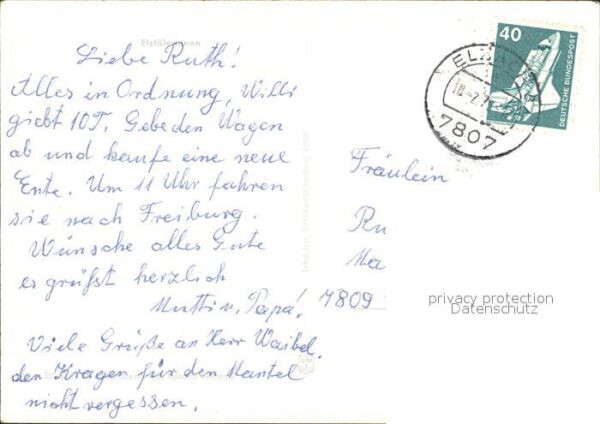 Liebe Ruth!
Alles in Ordnung, Willi
giebt 10T. Gebe den Wagen
ab und kaufe eine neue
Ente. Um 11 Uhr fahren
sie nach Freiburg.
Wünsche alles Gute
es grüßt herzlich
Mutti u. Papa!
Viele Grüße an Herr Waibel.
den Kragen für den Mantel
nicht vergessen.
40
DEUTSCHE BUNDESPOST
7807
Fräulein
Ru
Ma
7809
privacy protection
Datenschutz